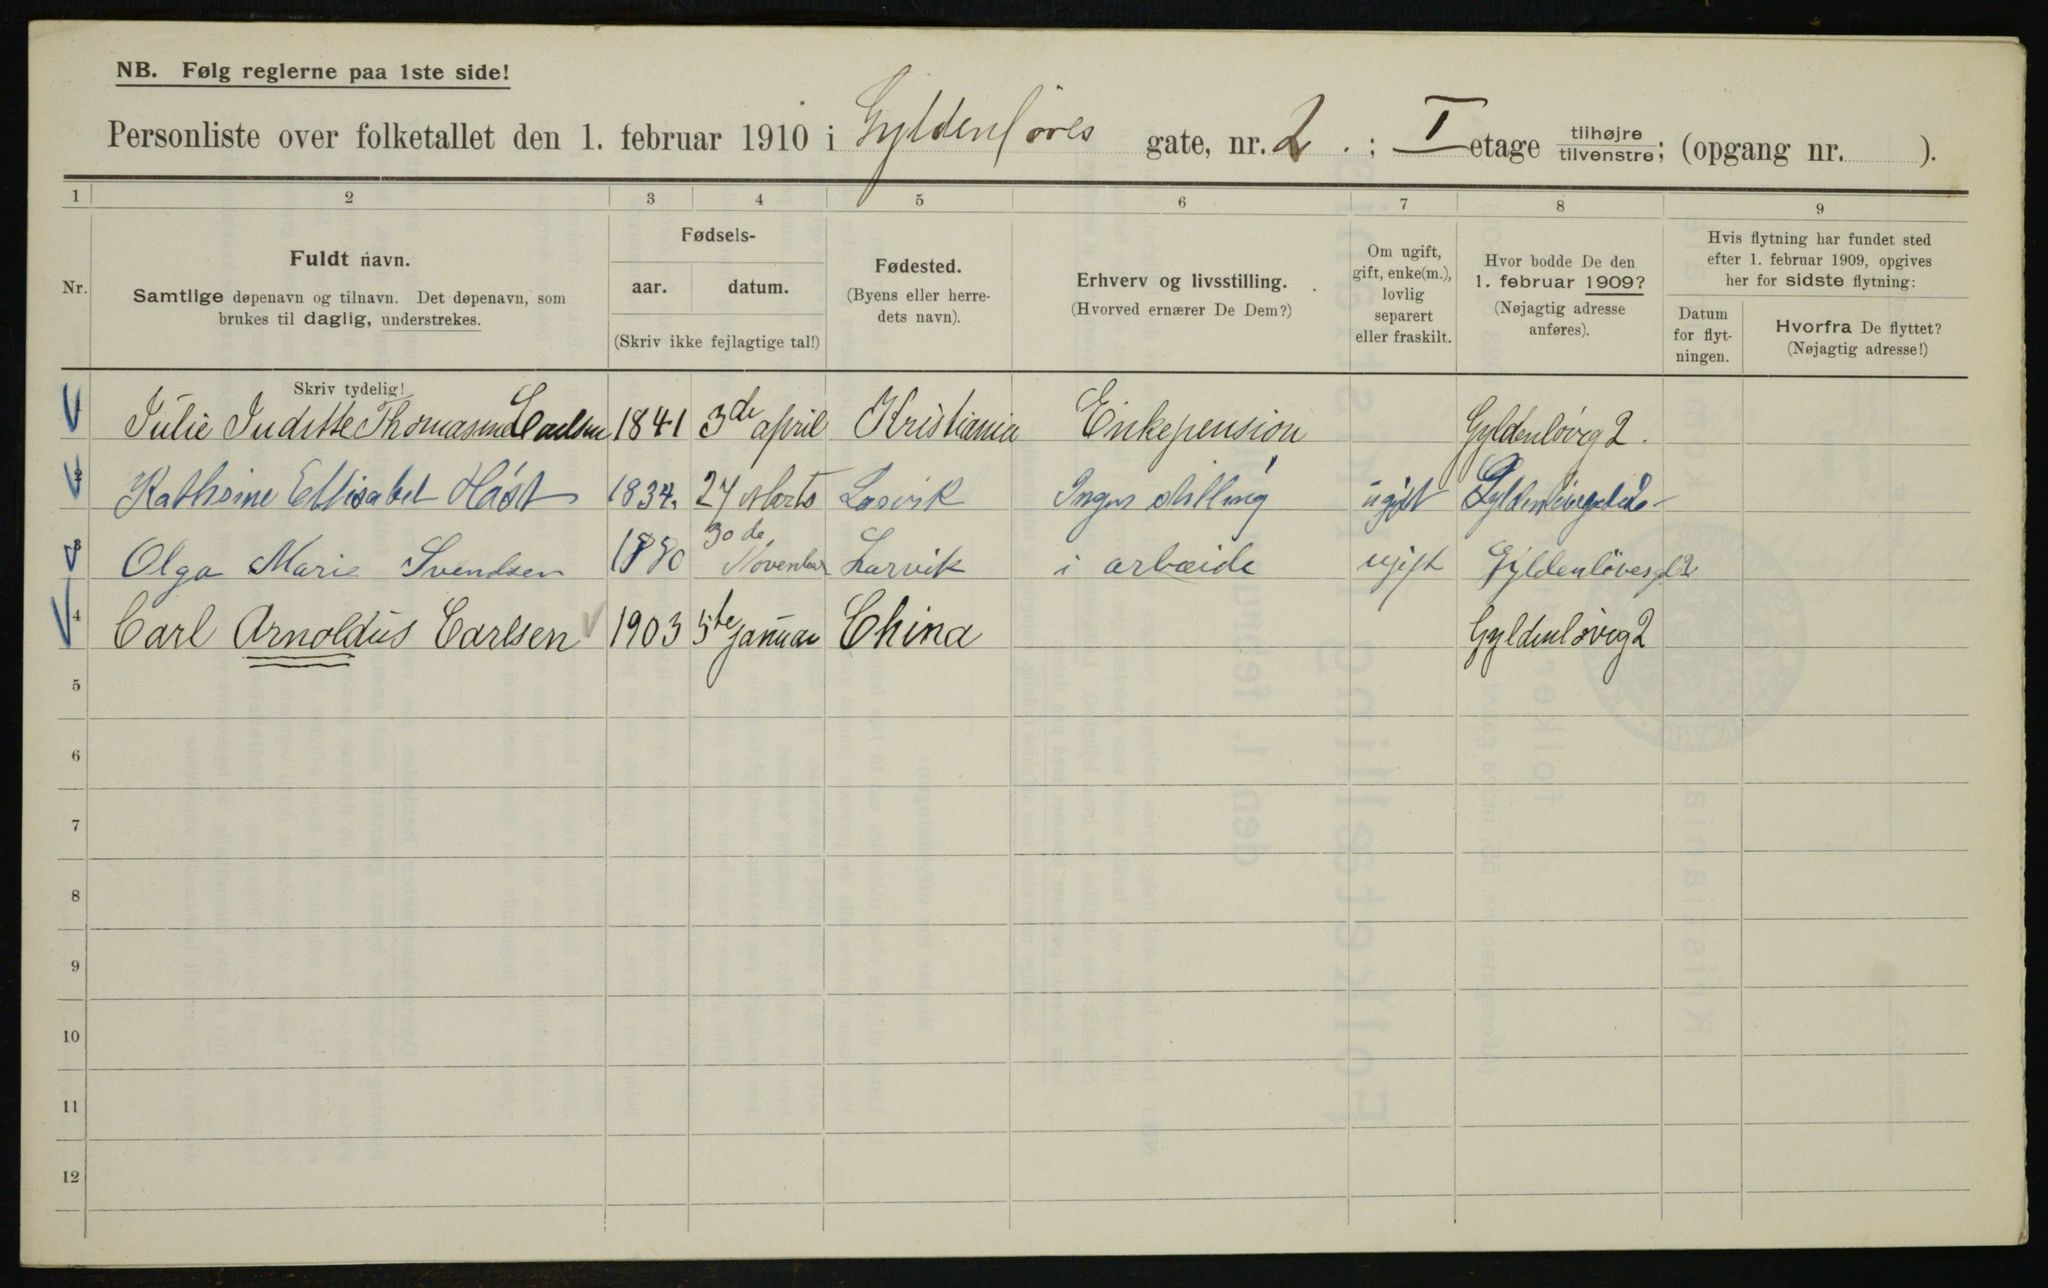 NB. Følg reglerne paa 1ste side!
Personliste over folketallet den 1. februar 1910 i Gyldenløves gate, nr. 2. ; I etage tilhøjre tilvenstre; (opgang nr. ).
1 2 3 4 5 6 7 8 9
Nr.
Fuldt navn.
Samtlige døpenavn og tilnavn. Det døpenavn, som
brukes til daglig, understrekes.
Fødsels-
aar. datum.
(Skriv ikke fejlagtige tal!)
Fødested.
(Byens eller herre-
dets navn).
Erhverv og livsstilling.
(Hvorved ernærer De Dem?)
Om ugift,
gift, enke(m.),
lovlig
separert
eller fraskilt.
Hvor bodde De den
1. februar 1909?
(Nøjagtig adresse
anføres).
Hvis flytning har fundet sted
efter 1. februar 1909, opgives
her for sidste flytning:
Datum
for flyt-
ningen.
Hvorfra De flyttet?
(Nøjagtig adresse!)
Skriv tydelig!
1 Julie Juditte Thomasine Carlsen 1841 3de april Kristiania Enkepension Gyldenløvsg 2.
2 Kathrine Ellisabet Høst 1834. 27 Marts Larvik Ingen stilling ugift
3 Olga Marie Svendsen 1880 30de November Larvik i arbeide ugift Gyldenløvesgd 2
4 Carl Arnoldus Carlsen 1903 5te januar China Gyldenløvsg 2
5
6
7
8
9
10
11
12